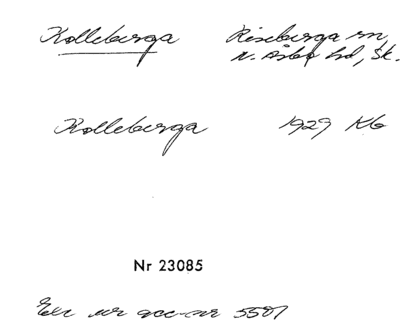 Kolleberga Riseberga sn,
N. Åsbo hd, Sk.
Kolleberga 1929 Kb
Nr 23085
Exc ur acc-nr 5587